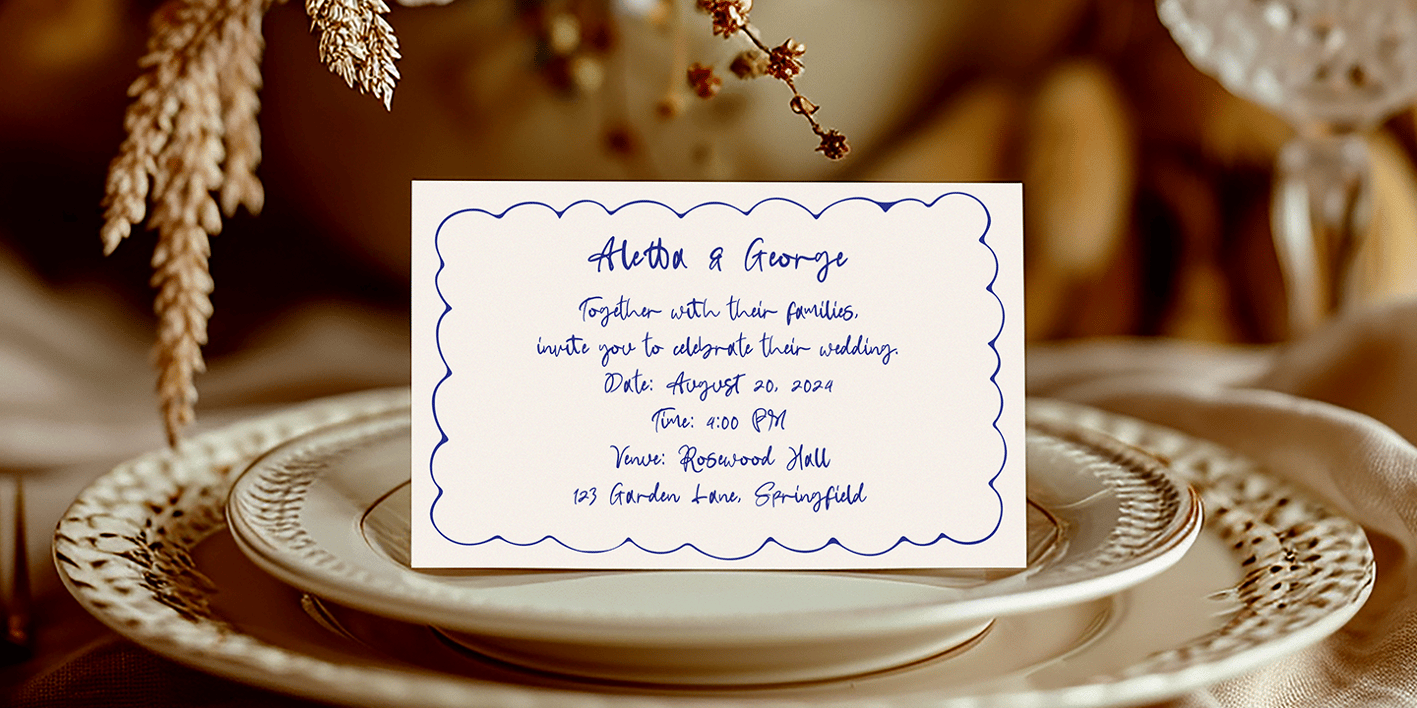 Aletta & George
Together with their families,
invite you to celebrate their wedding.
Date: August 20, 2024
Time: 4:00 PM
Venue: Rosewood Hall
123 Garden Lane, Springfield